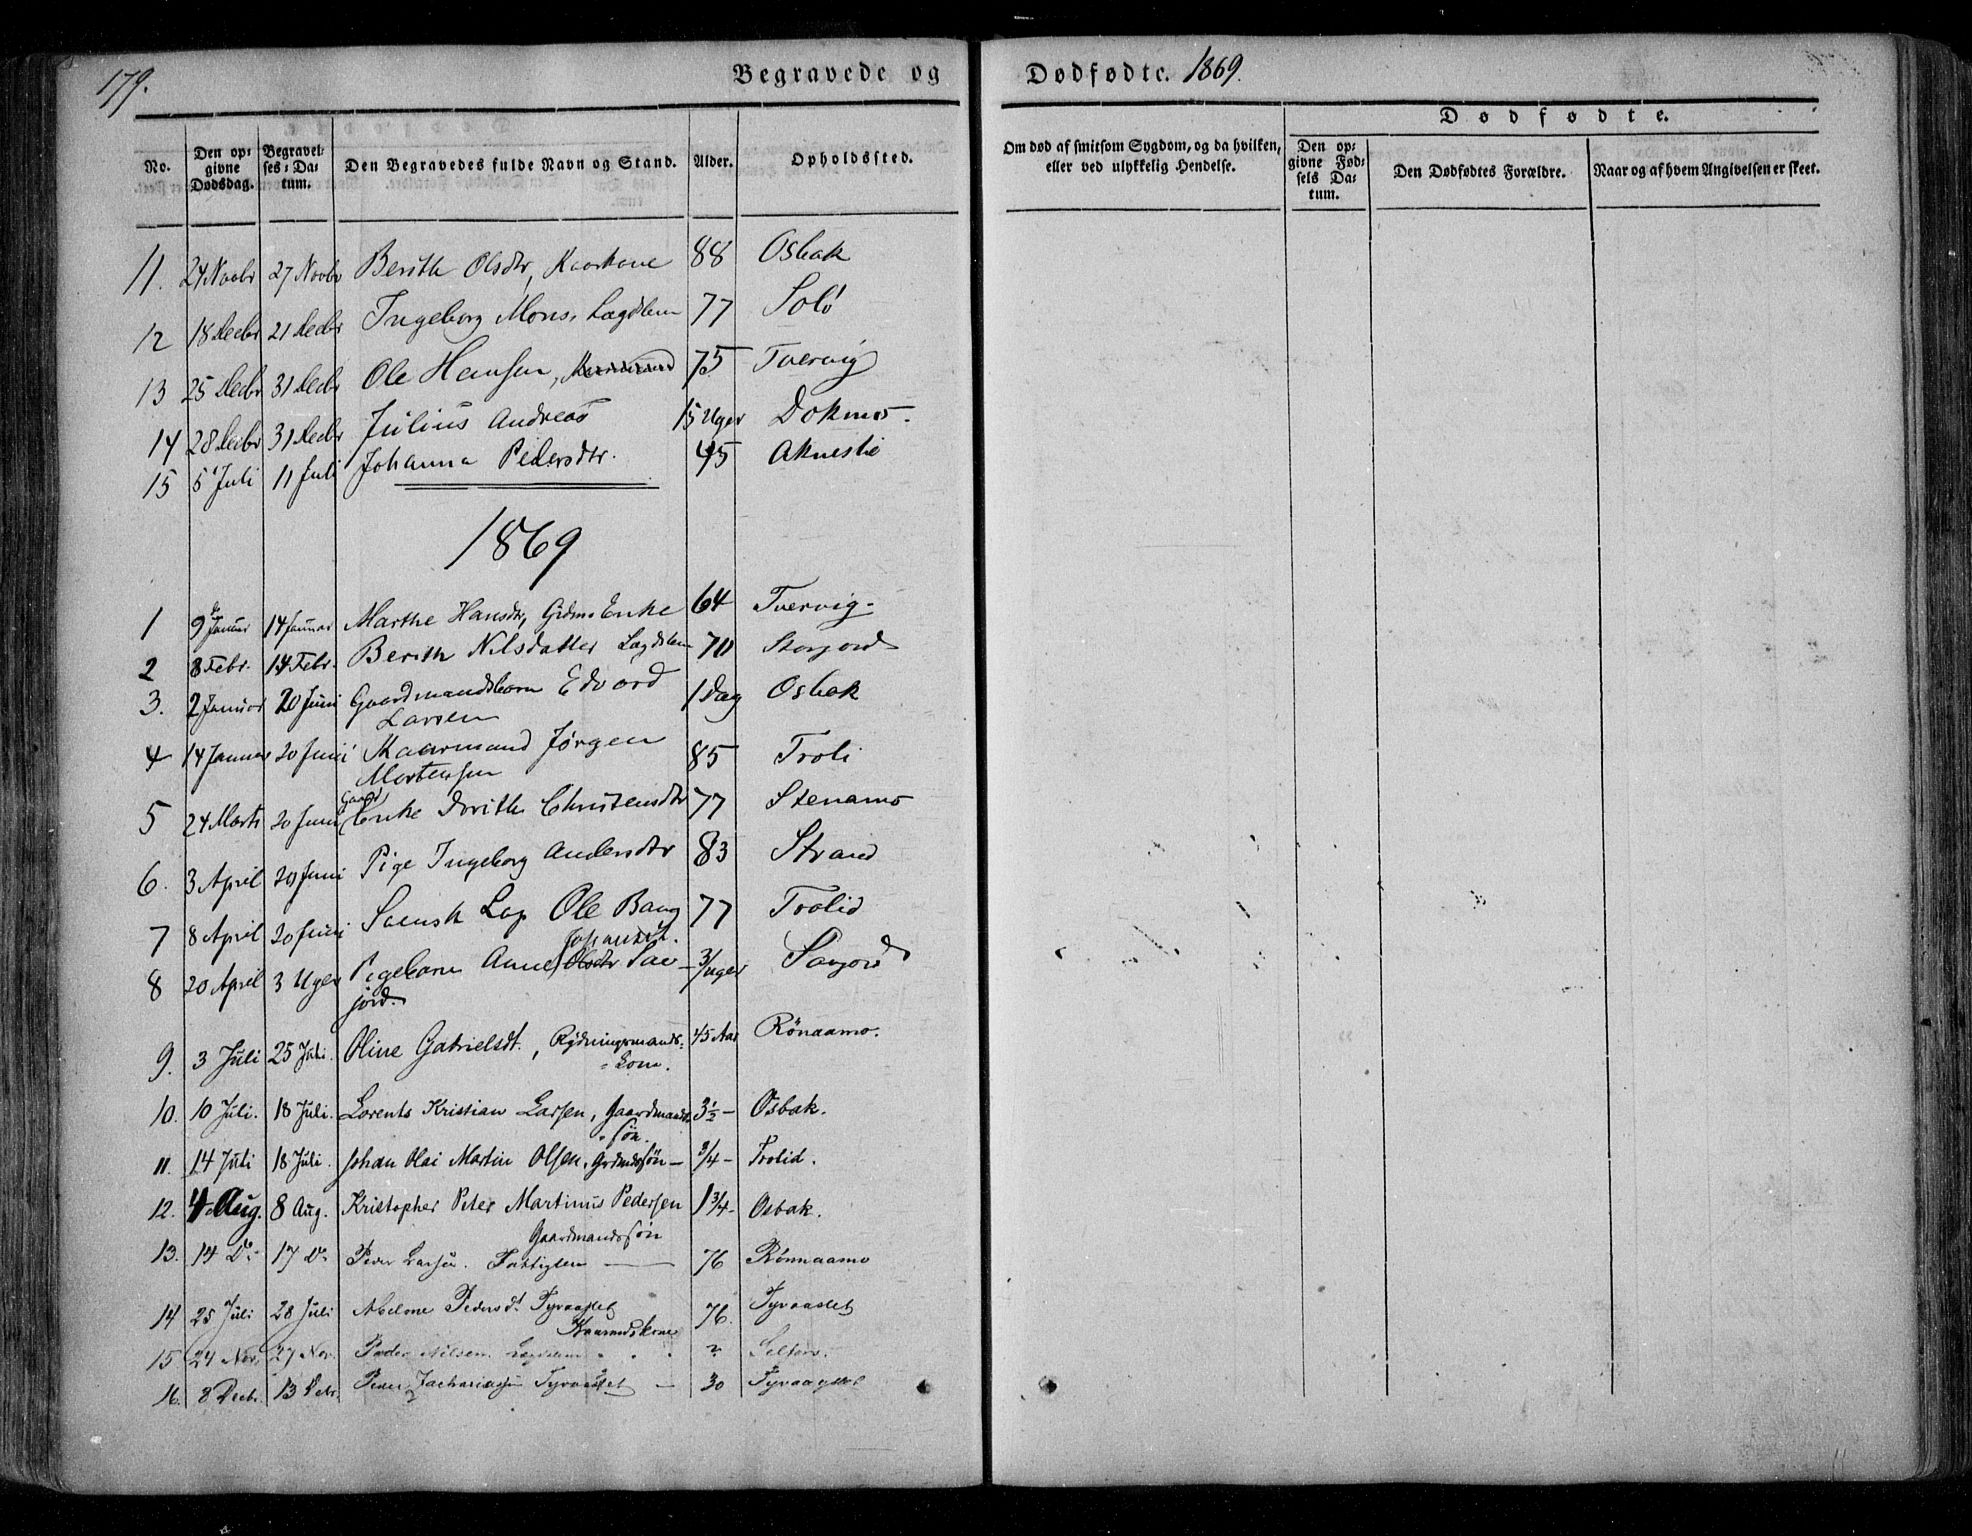 179.
Begravede og Dødfødte. 1869.
No. Den opgivne Dødsdag. Begravelses-Datum. Den Begravedes fulde Navn og Stand. Alder. Opholdssted. Om død af smitsom Sygdom, og da hvilken, eller ved ulykkelig Hendelse. Dødfødte. Den opgivne Fødsels Datum. Den Dødfødtes Forældre. Naar og af hvem Angivelsen er skeet.
11. 24 Novbr 27 Novbr Berith Olsdtr, Kaarkone 88 Osbak
12 18 Decbr 21 Decbr Ingeborg Mons, Lægdslem 77 Solø
13 25 Decbr 31 Decbr Ole Hansen, 75 Tvervig
14 28 Decbr 31 Decbr Julius Andreas 15 Uger Dokmo.
15 5 Juli 11 Juli Johanna Pedersdtr. 45
1869
1 9 Januar 14 Januar Marthe Hansdtr, Grdm. Enke 64 Tvervig.
2 8 Febr. 14 Febr. Berith Nilsdatter Lægdslem 70 Storjord
3. 2 Januar 20 Juni Gaardmandsbarn Edvard
Larsen 1 Dag Osbak
4 14 Januar 20 Juni Kaarmand Jørgen
Mortensen 85 Troli
5 24 Marts 20 Juni Gaard
Enke Dorith Christensdtr 77 Stenamo
6. 3 April 20 Juni Pige Ingeborg Andersdtr 83 Strand
7 8 April 20 Juni Svensk Lap Ole Bang 77 Trolid
8 20 April 3 Uger Pigebarn Anne Johansdt. Olsdtr Sav
jord. 3/uger Savjord
9. 3 Juli 25 Juli. Oline Gabrielsdt., Rydningsmands-
Kone. 45 Aar Rönaamo.
10. 10 Juli. 18 Juli. Lorents Kristian Larsen, Gaardmands
søn. 3½ - Osbak.
11. 14 Juli 18 Juli. Johan Olai Martin Olsen, Grdmdssøn - 3/4 - Trolid.
12. 4 Aug. 8 Aug. Kristopher Peter Martinus Pedersen
Gaardmandssøn 1 3/4 - Osbak.
13. 14 Do 17 Do Peder Larsen. Fattiglem 76 Rönnaamo
14 25 Juli 28 Juli Pedersdt. Tyvaaslet
Kaarmdskone 76. Tyvaaslet
15 24 Nov. 27 Nov. Peder Nilsen. Lægdslem ?
16. 8 Decbr. 13 Debr. Peder Zachariassen Tyvaaslet - 30 Tyvaaslet